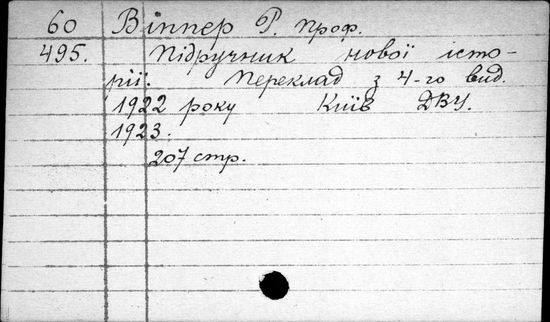 60 Віппер Р. проф.
495. Підручник нової істо-
рії. Переклад з 4-го вид.
1922 року Київ ДВУ.
1923.
207 стр.